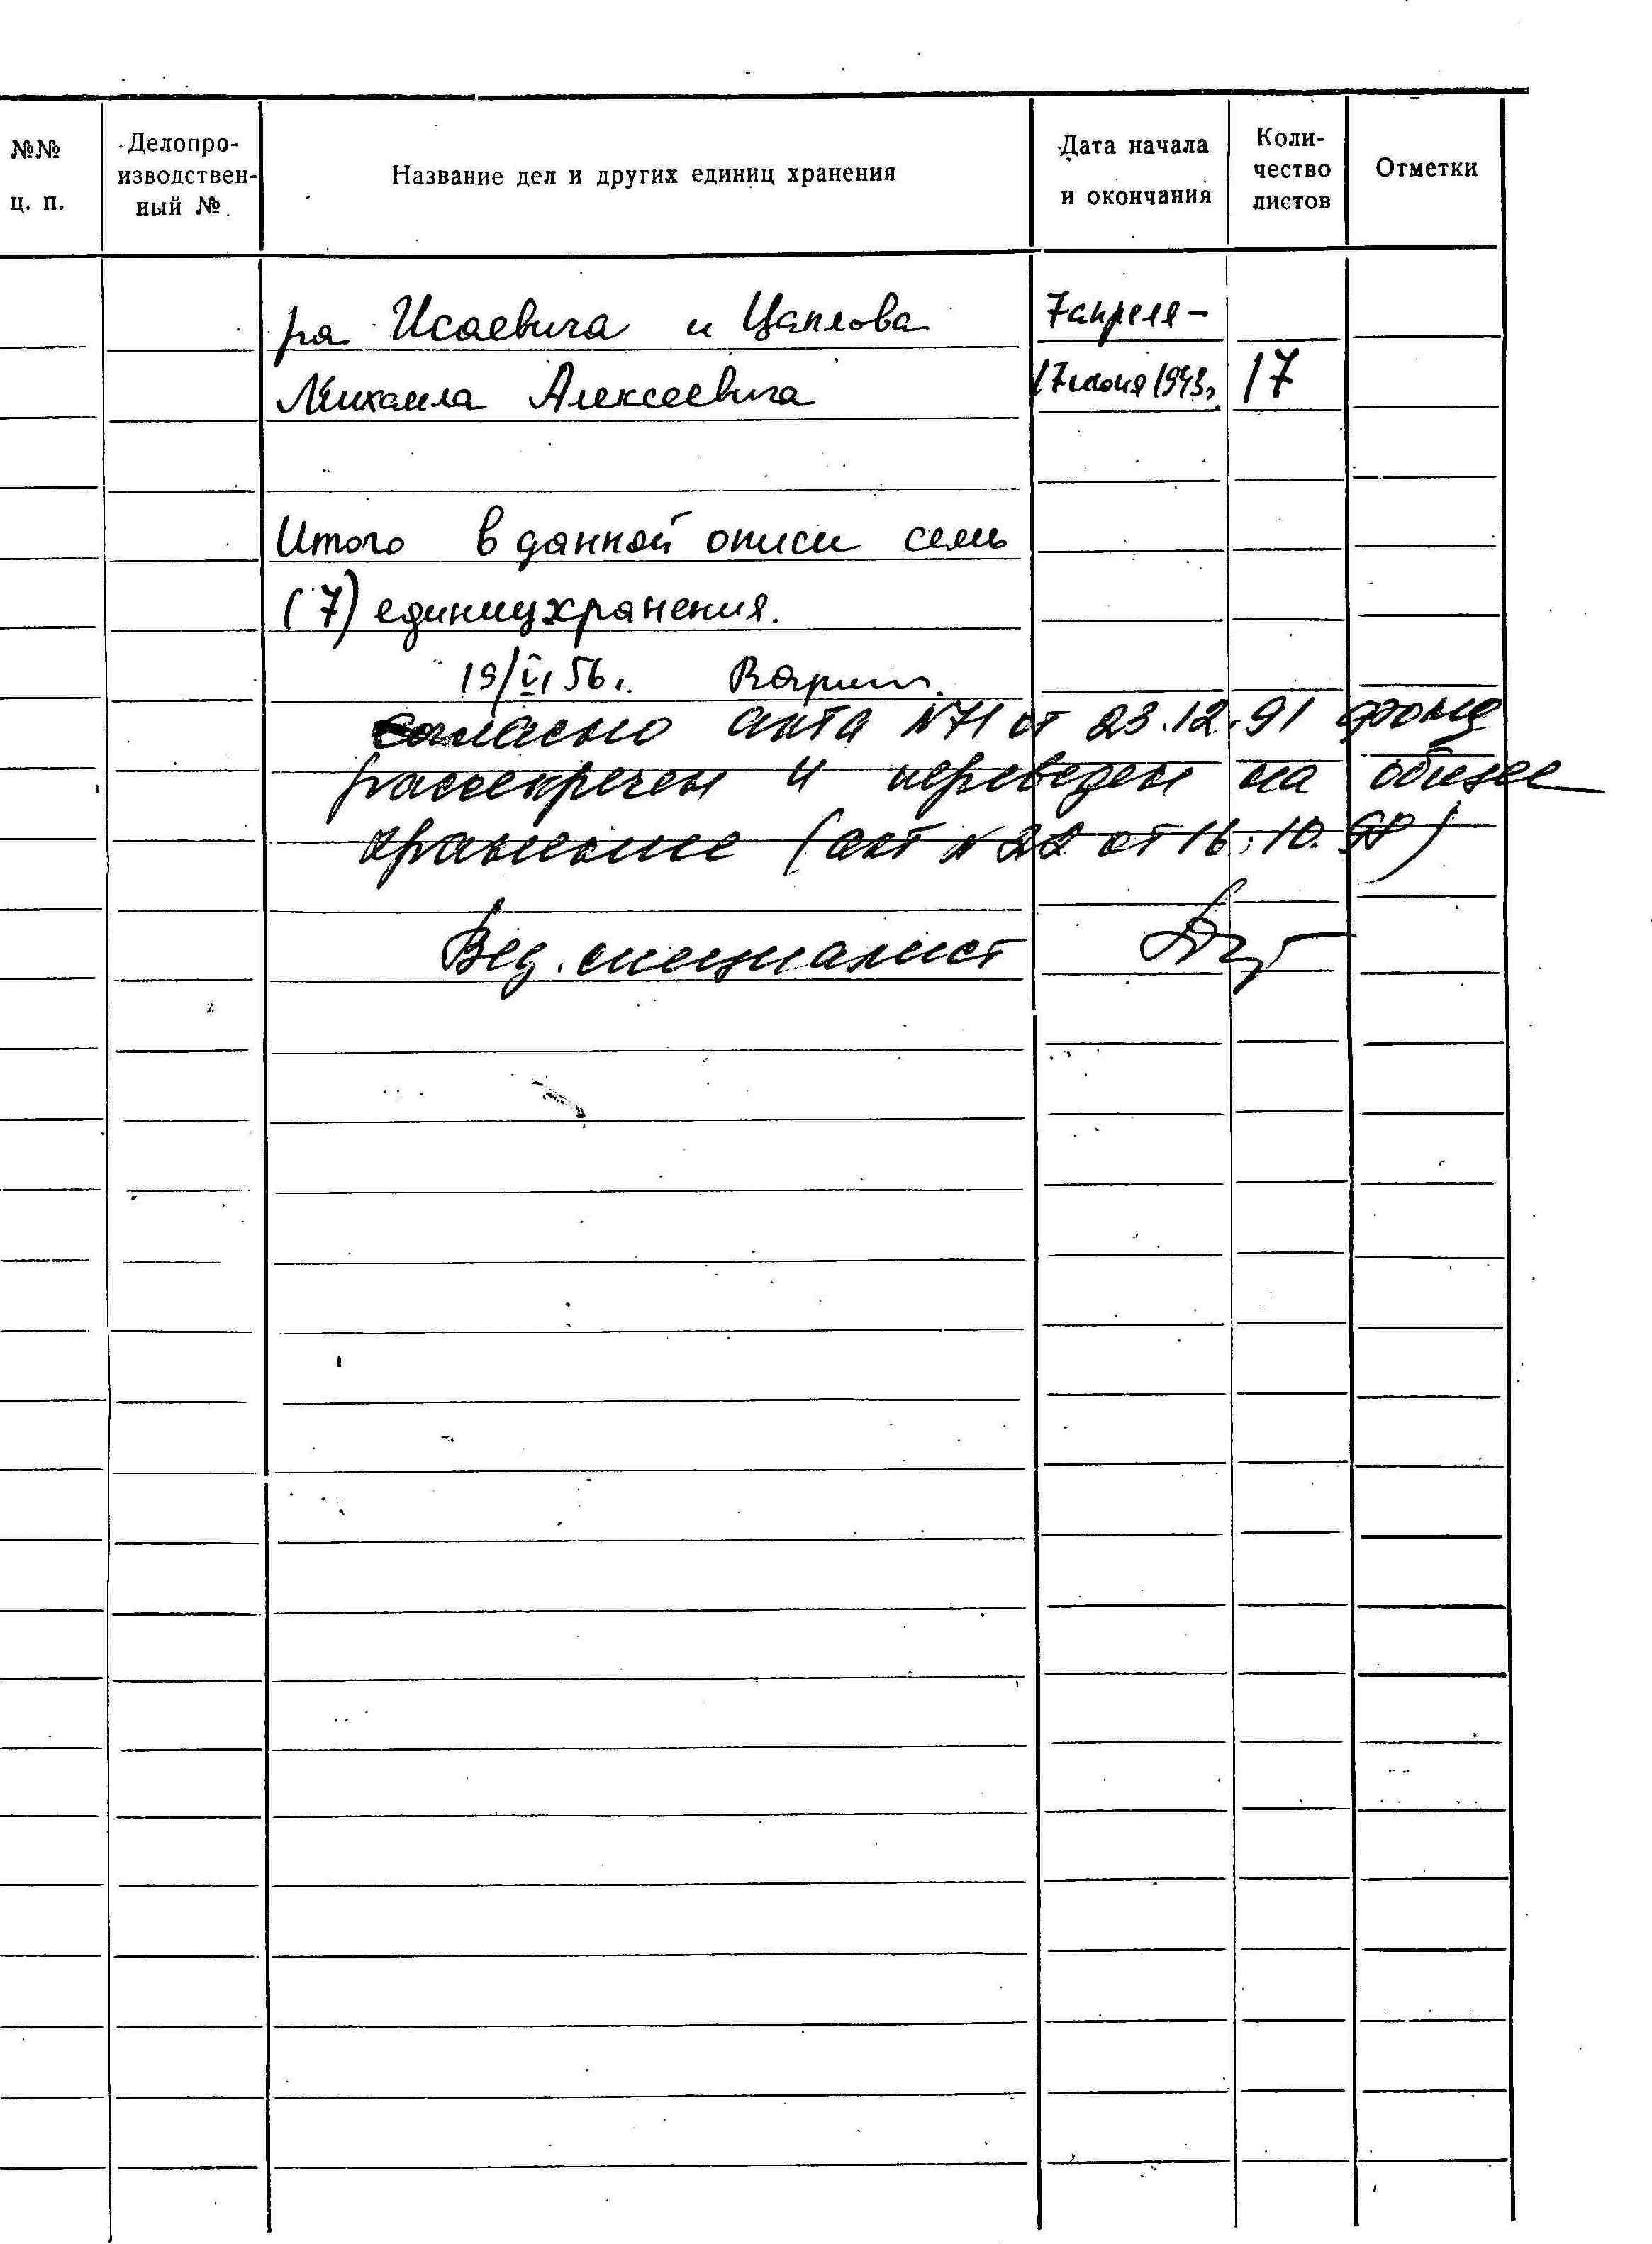 №№
ц. п.
Делопро-
изводствен-
ный №
Название дел и других единиц хранения
Дата начала
и окончания
Коли-
чество
листов
Отметки
ра Исаевича и Цаплова 7 апреля –
Михаила Алексеевича 17 июня 1943г. 17
Итого в данной описи семь
(7) единиц хранения.
19/VI 56г.
Согласно акта №71 от 23.12.91 фонд
рассекречен и переведен на общее
хранение (акт № 22 от 16.10.98)
Вед. специалист